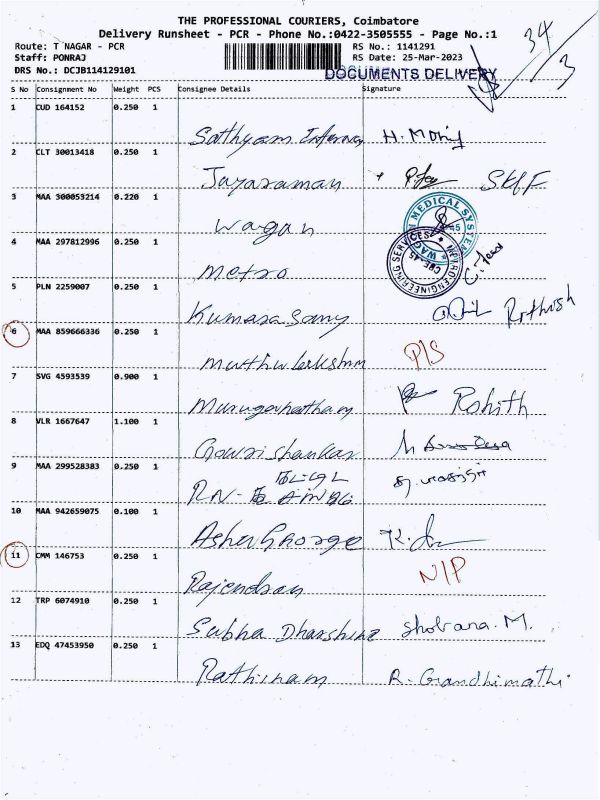 THE PROFESSIONAL COURIERS, Coimbatore
Delivery Runsheet - PCR - Phone No.:0422-3505555 - Page No.:1
Route: T NAGAR - PCR
RS No.: 1141291
Staff: PONRAJ
RS Date: 25-Mar-2023
DRS No.: DCJB114129101
DOCUMENTS DELIVERY
34/3
S No Consignment No Weight PCS Consignee Details Signature
1 CUD 164152 0.250 1
Sathyam
2 CLT 30013418 0.250 1
Jayaraman SKF
3 MAA 300053214 0.220 1
Wagan
MEDICAL SYSTEM
4 MAA 297812996 0.250 1
Metro
METRO ENGINEERING SERVICES
CBE-45
5 PLN 2259007 0.250 1
Kumarasamy Rithish
6 MAA 859666336 0.250 1
P/S
7 SVG 4593539 0.900 1
Rohith
8 VLR 1667647 1.100 1
Gowrishankar
9 MAA 299528383 0.250 1
10 MAA 942659075 0.100 1
Asher George
11 CMM 146753 0.250 1
Rajendran N/P
12 TRP 6074910 0.250 1
Subha Dharshini Shobana. M.
13 EDQ 47453950 0.250 1
Rathinam R. Gandhimathi